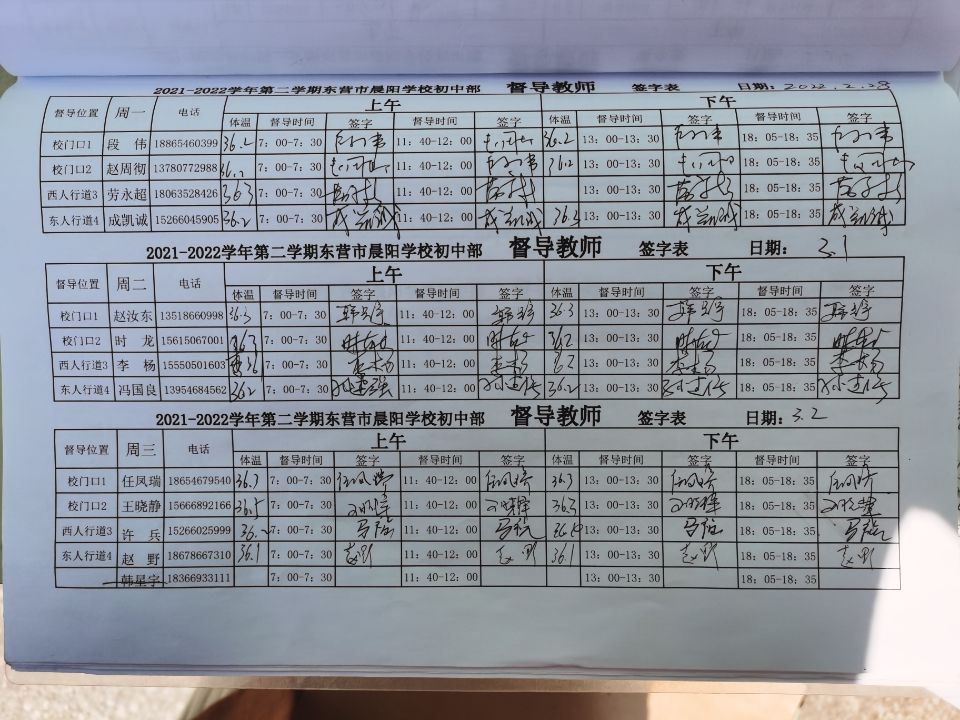 2021-2022学年第二学期东营市晨阳学校初中部 督导教师 签字表 日期：2022.2.28
督导位置 周一 电话 上午 下午
体温 督导时间 签字 督导时间 签字 体温 督导时间 签字 督导时间 签字
校门口1 段伟 18865460399 36.2 7：00-7：30 11：40-12：00 36.2 13：00-13：30 18：05-18：35
校门口2 赵周彻 13780772988 7：00-7：30 11：40-12：00 36.2 13：00-13：30 18：05-18：35
西人行道3 劳永超 18063528426 36.3 7：00-7：30 11：40-12：00 13：00-13：30 18：05-18：35
东人行道4 成凯诚 15266045905 36.2 7：00-7：30 成凯诚 11：40-12：00 成凯诚 13：00-13：30 成凯诚 18：05-18：35 成凯诚
2021-2022学年第二学期东营市晨阳学校初中部 督导教师 签字表 日期：3.1
督导位置 周二 电话 上午 下午
体温 督导时间 签字 督导时间 签字 体温 督导时间 签字 督导时间 签字
校门口1 赵汝东 13518660998 36.3 7：00-7：30 11：40-12：00 36.3 13：00-13：30 18：05-18：35
校门口2 时龙 15615067001 36.3 7：00-7：30 11：40-12：00 36.2 13：00-13：30 18：05-18：35
西人行道3 李杨 15550501603 7：00-7：30 李杨 11：40-12：00 李杨 13：00-13：30 李杨 18：05-18：35 李杨
东人行道4 冯国良 13954684562 36.2 7：00-7：30 11：40-12：00 36.2 13：00-13：30 18：05-18：35
2021-2022学年第二学期东营市晨阳学校初中部 督导教师 签字表 日期：3.2
督导位置 周三 电话 上午 下午
体温 督导时间 签字 督导时间 签字 体温 督导时间 签字 督导时间 签字
校门口1 任凤瑞 18654679540 36.3 7：00-7：30 任凤瑞 11：40-12：00 任凤瑞 36.3 13：00-13：30 任凤瑞 18：05-18：35 任凤瑞
校门口2 王晓静 15666892166 36.5 7：00-7：30 11：40-12：00 36.3 13：00-13：30 18：05-18：35
西人行道3 许兵 15266025999 36.2 7：00-7：30 11：40-12：00 36.4 13：00-13：30 18：05-18：35
东人行道4 赵野 18678667310 36.1 7：00-7：30 赵野 11：40-12：00 赵野 36.1 13：00-13：30 赵野 18：05-18：35 赵野
韩星宇 18366933111 7：00-7：30 11：40-12：00 13：00-13：30 18：05-18：35